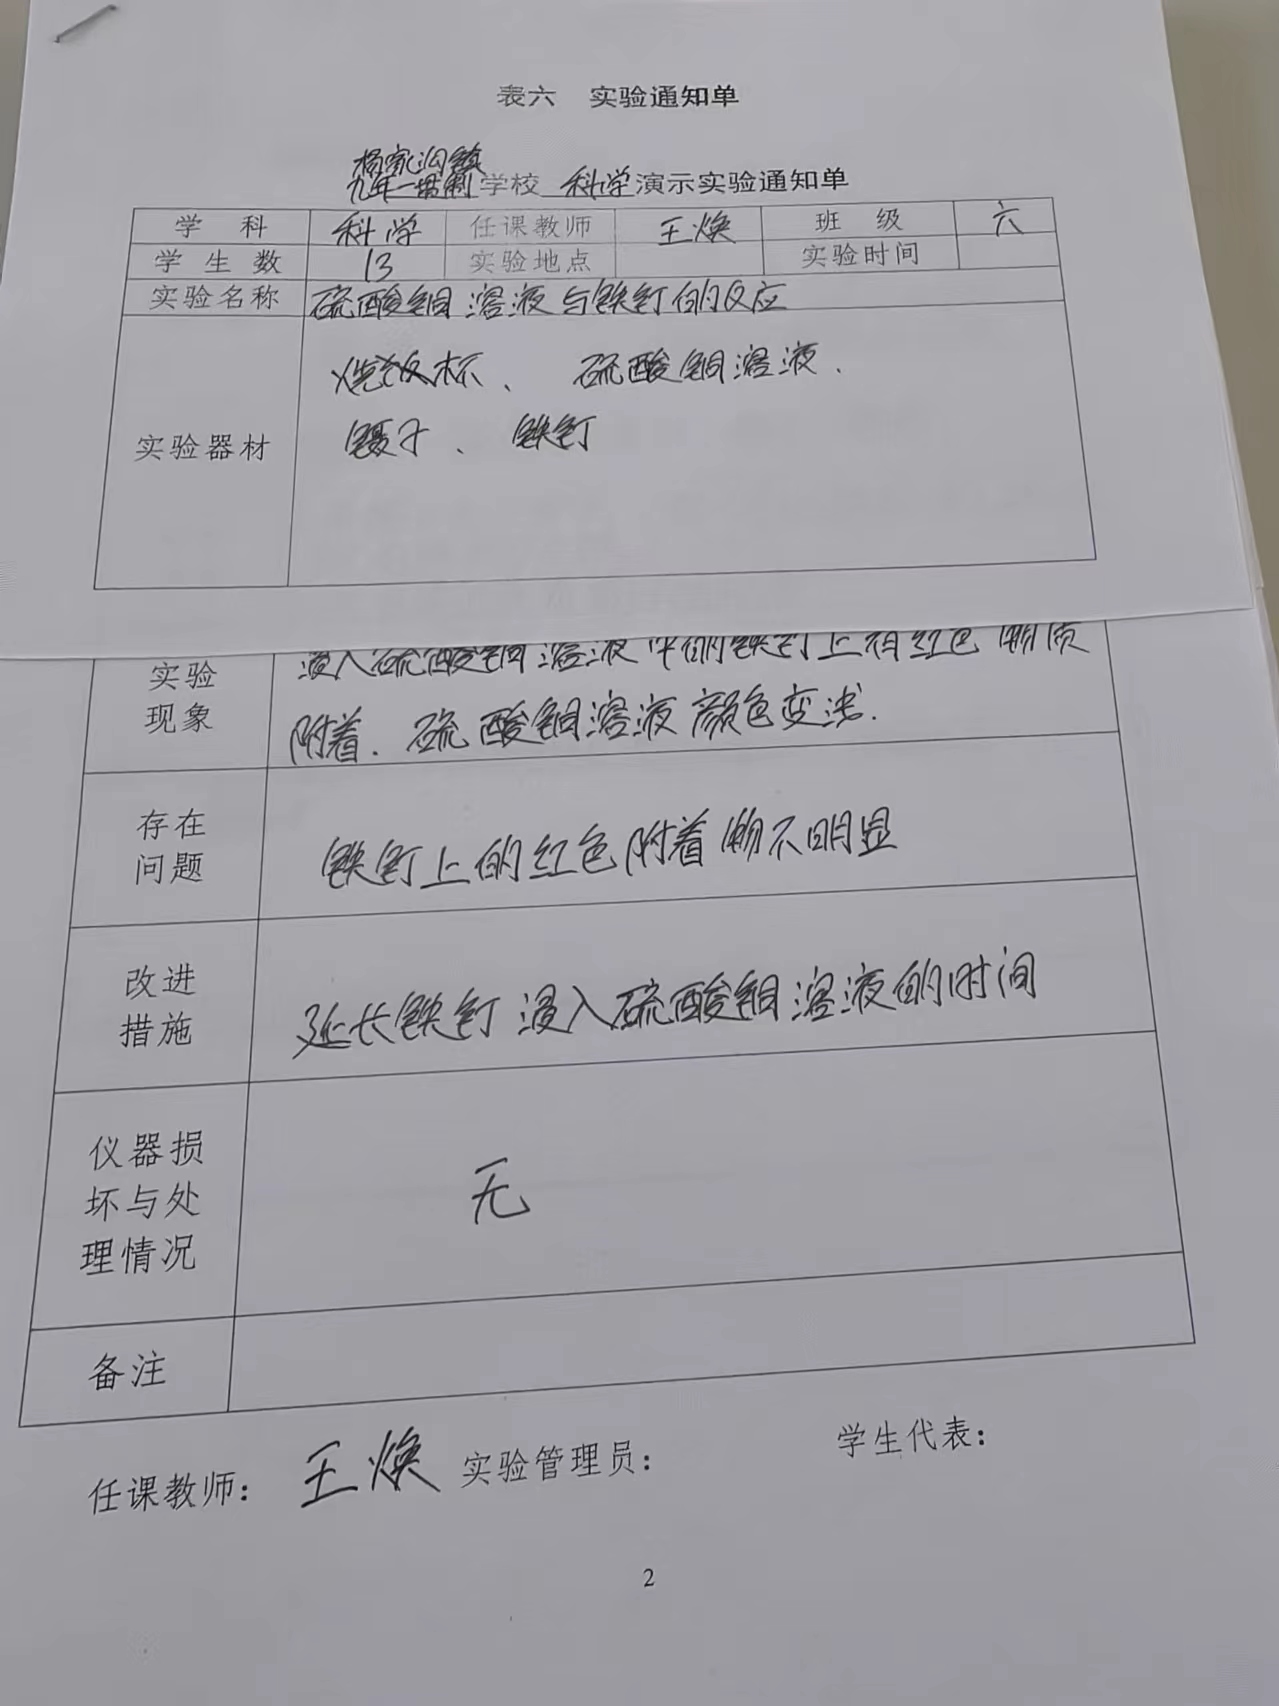 表六 实验通知单
杨家沟镇
九年一贯制学校 科学演示实验通知单
学 科 科学 任课教师 王焕 班 级 六
学 生 数 13 实验地点 实验时间
实验名称 硫酸铜溶液与铁钉的反应
烧杯、 硫酸铜溶液.
实验器材 镊子、 铁钉
实验 浸入硫酸铜溶液中的铁钉上有红色物质
现象 附着. 硫酸铜溶液颜色变浅.
存在
问题 铁钉上的红色附着物不明显
改进
措施 延长铁钉浸入硫酸铜溶液的时间
仪器损
坏与处 无
理情况
备注
任课教师: 王焕 实验管理员: 学生代表:
2